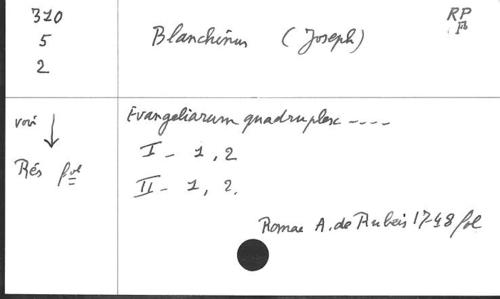 310
5
2
Blanchinus (Joseph)
RP
voir
Rés fol
Evangeliarum quadruplex ----
I - 1, 2
II - 1, 2.
Romae A. de Rubeis 1748 fol